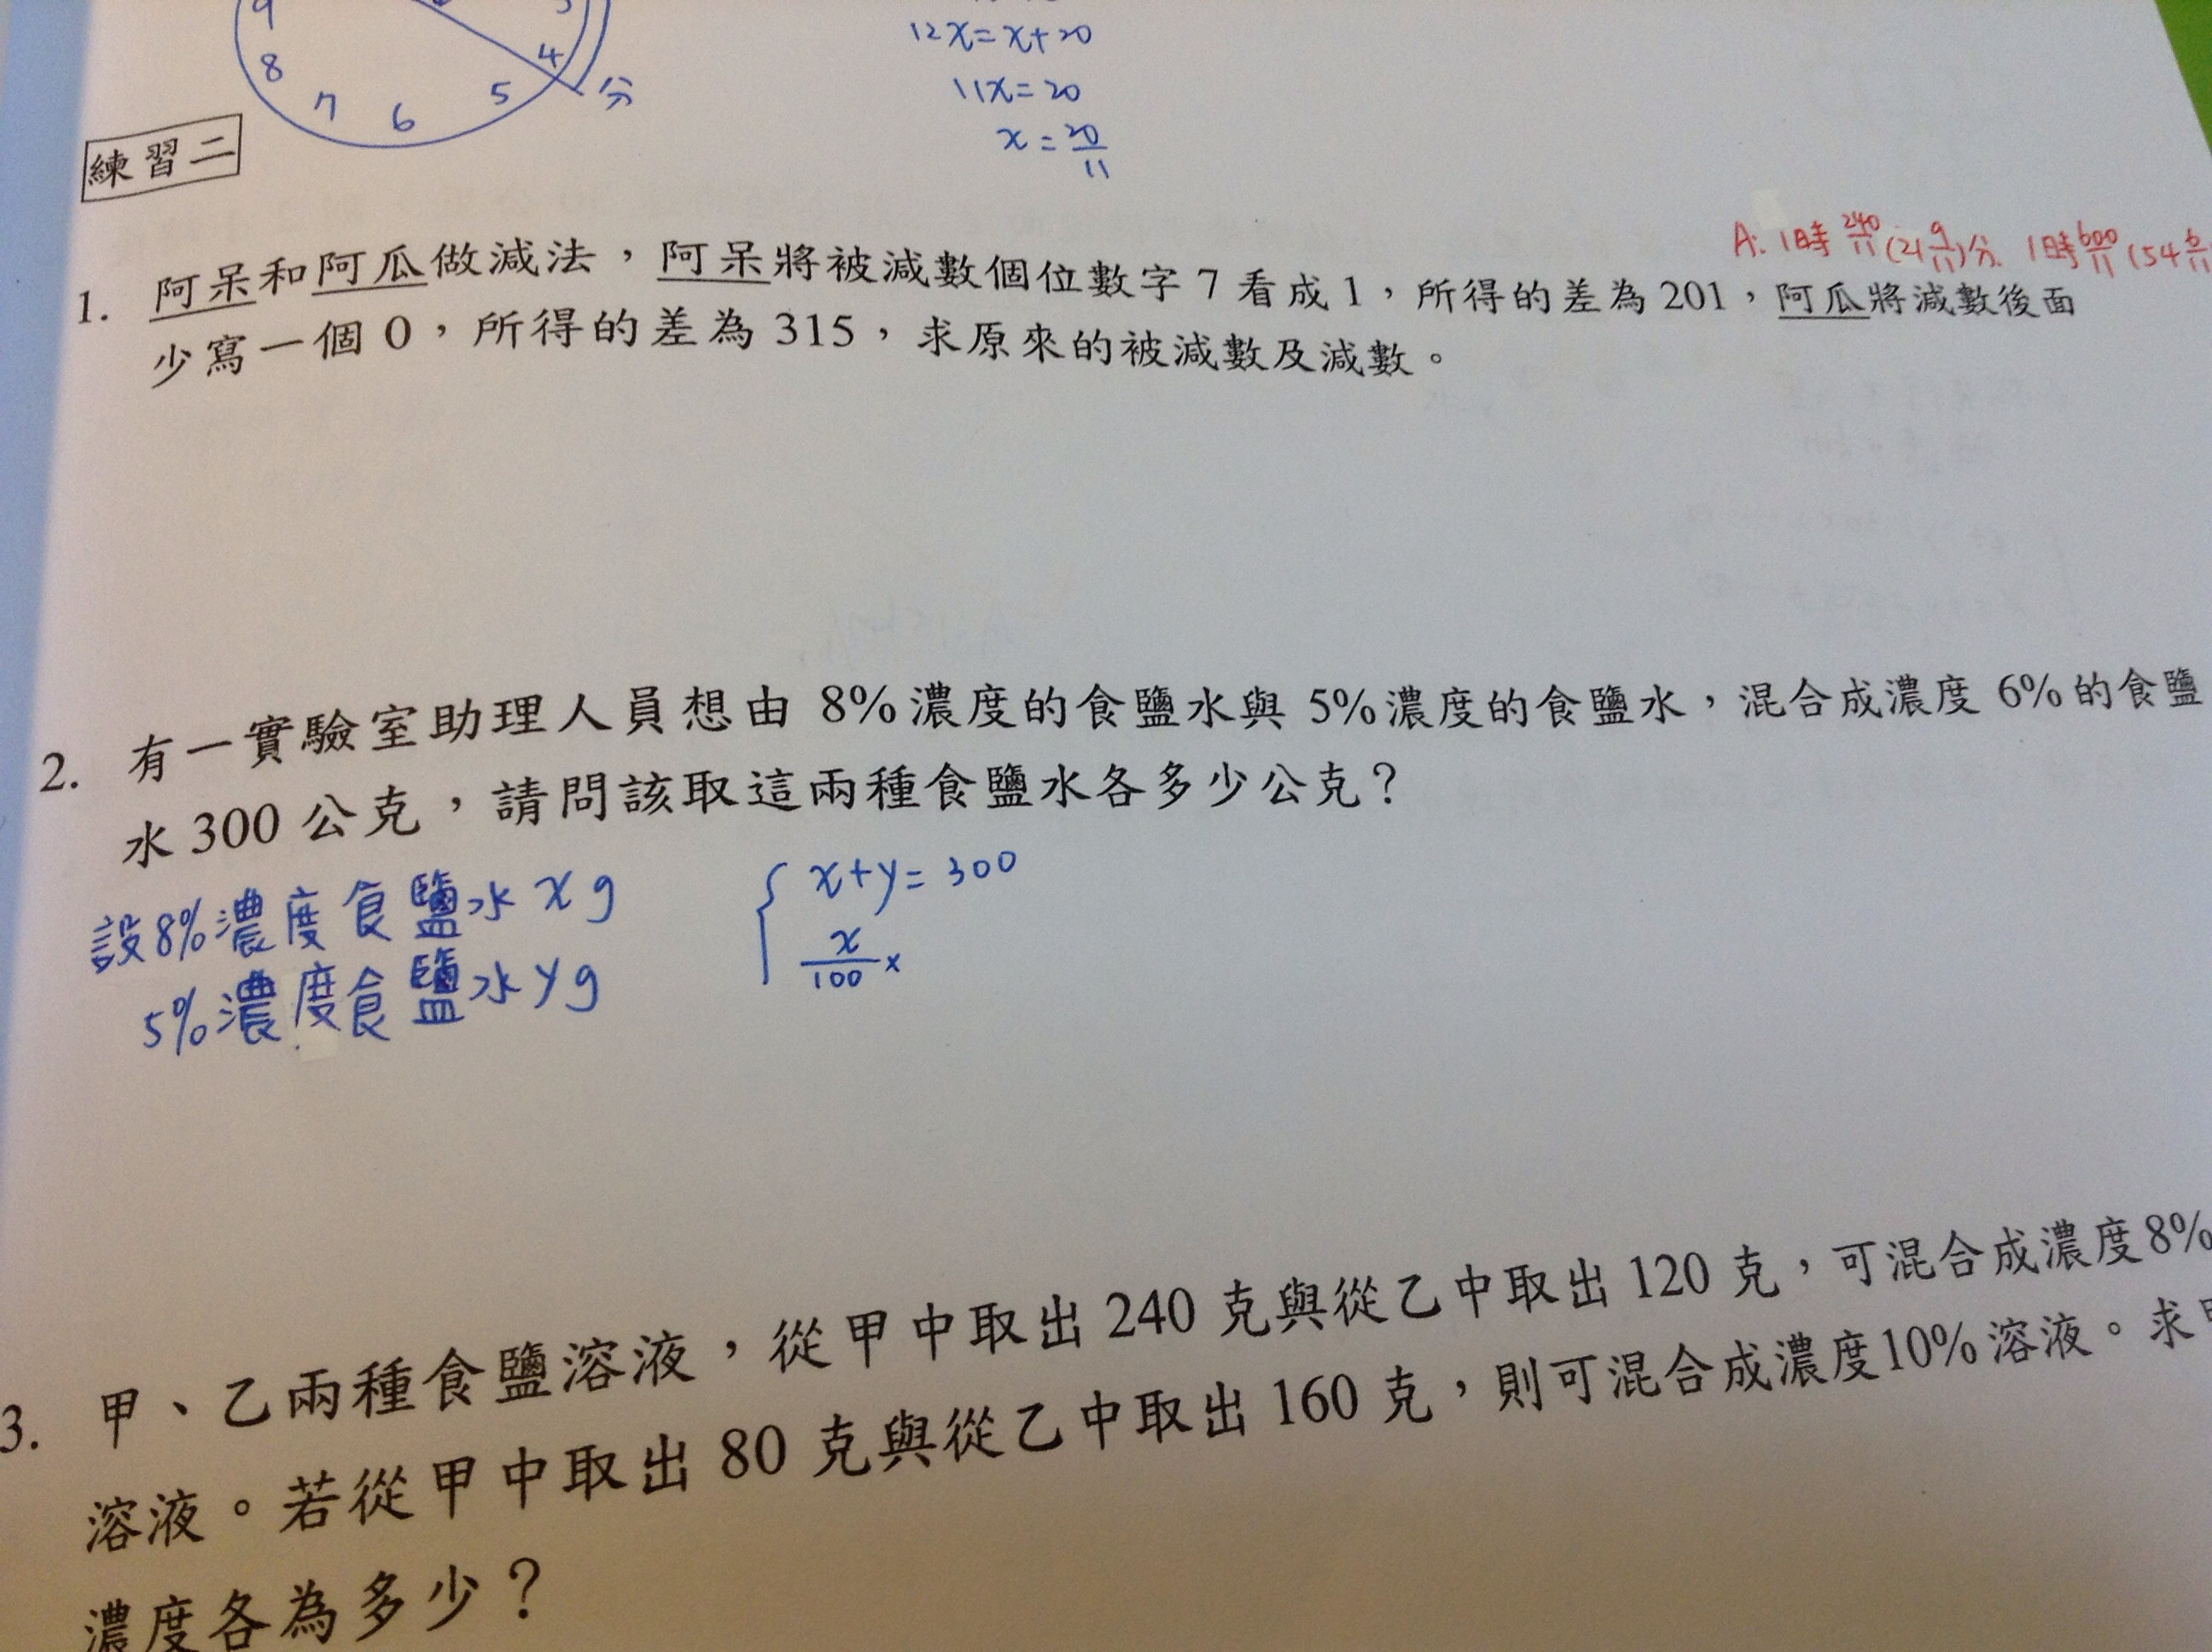 9
8
7
6
5
4
分
12x=x+20
11x=20
x=20/11
練習二
A: 1時240/11(21 9/11)分. 1時600/11(54 6/11
1. 阿呆和阿瓜做減法，阿呆將被減數個位數字7看成1，所得的差為201，阿瓜將減數後面
少寫一個0，所得的差為315，求原來的被減數及減數。
2. 有一實驗室助理人員想由8%濃度的食鹽水與5%濃度的食鹽水，混合成濃度6%的食鹽
水300公克，請問該取這兩種食鹽水各多少公克？
設8%濃度食鹽水xg
5%濃度食鹽水yg
x+y=300
x/100×
3. 甲、乙兩種食鹽溶液，從甲中取出240克與從乙中取出120克，可混合成濃度8%
溶液。若從甲中取出80克與從乙中取出160克，則可混合成濃度10%溶液。求
濃度各為多少？